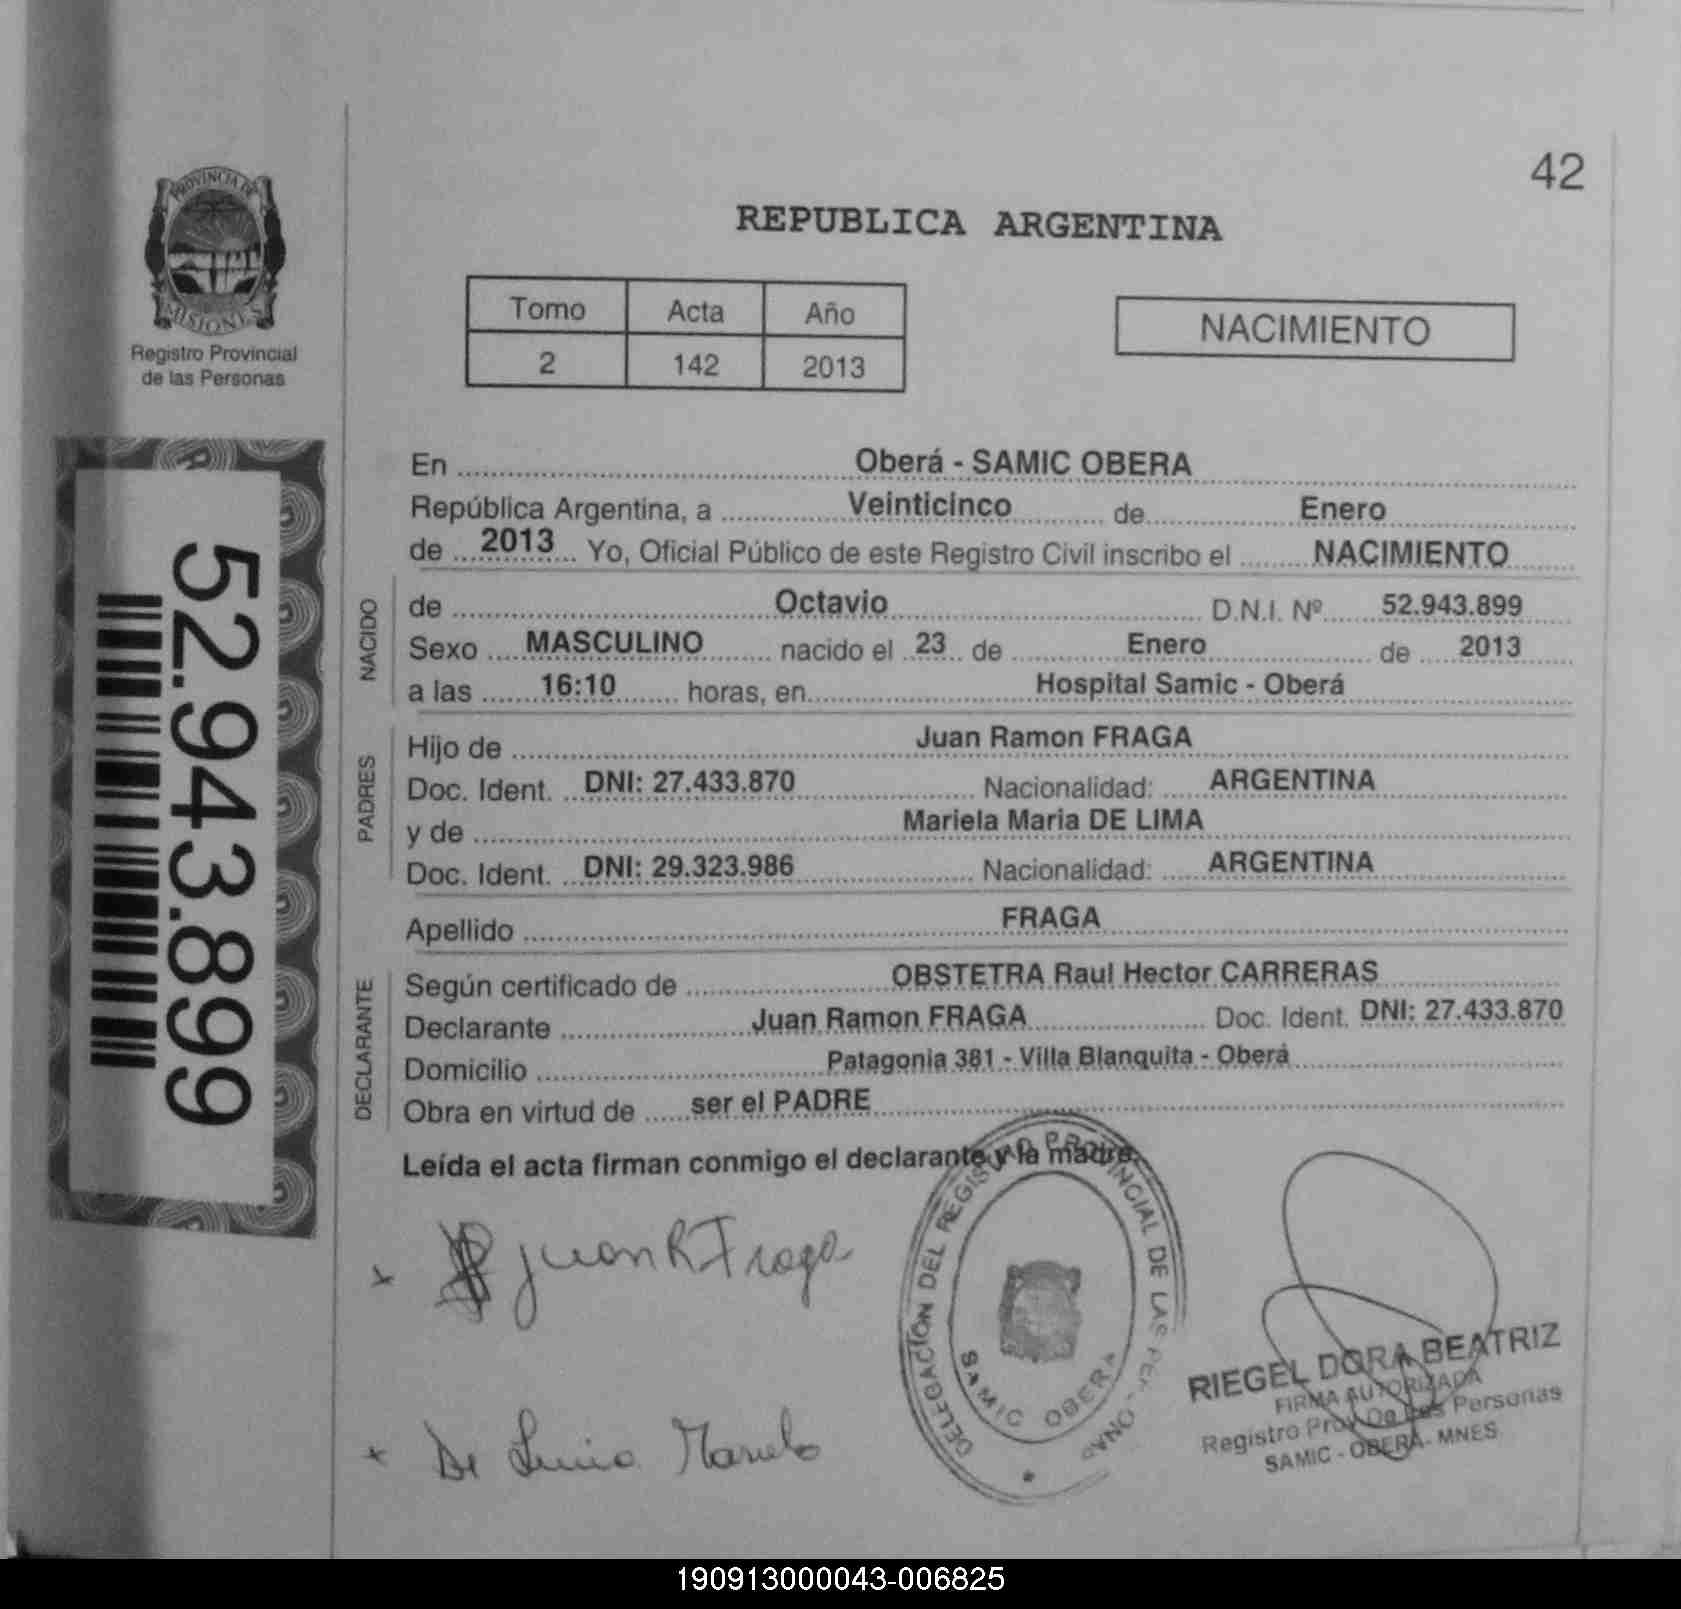 42
PROVINCIA DE
MISIONES
Registro Provincial
de las Personas
REPUBLICA ARGENTINA
Tomo Acta Año
2 142 2013
NACIMIENTO
52.943.899
En Oberá - SAMIC OBERA
República Argentina, a Veinticinco de Enero
de 2013 Yo, Oficial Público de este Registro Civil inscribo el NACIMIENTO
NACIDO
de Octavio D.N.I. Nº 52.943.899
Sexo MASCULINO nacido el 23 de Enero de 2013
a las 16:10 horas, en Hospital Samic - Oberá
PADRES
Hijo de Juan Ramon FRAGA
Doc. Ident. DNI: 27.433.870 Nacionalidad: ARGENTINA
y de Mariela Maria DE LIMA
Doc. Ident. DNI: 29.323.986 Nacionalidad: ARGENTINA
Apellido FRAGA
DECLARANTE
Según certificado de OBSTETRA Raul Hector CARRERAS
Declarante Juan Ramon FRAGA Doc. Ident. DNI: 27.433.870
Domicilio Patagonia 381 - Villa Blanquita - Oberá
Obra en virtud de ser el PADRE
Leída el acta firman conmigo el declarante y la madre.
x Juan R Fraga
DELEGACIÓN DEL REGISTRO PROVINCIAL DE LAS PERSONAS
SAMIC OBERA
RIEGEL DORA BEATRIZ
FIRMA AUTORIZADA
Registro Prov. De Las Personas
SAMIC - OBERA - MNES
x De Lima Mariela
190913000043-006825